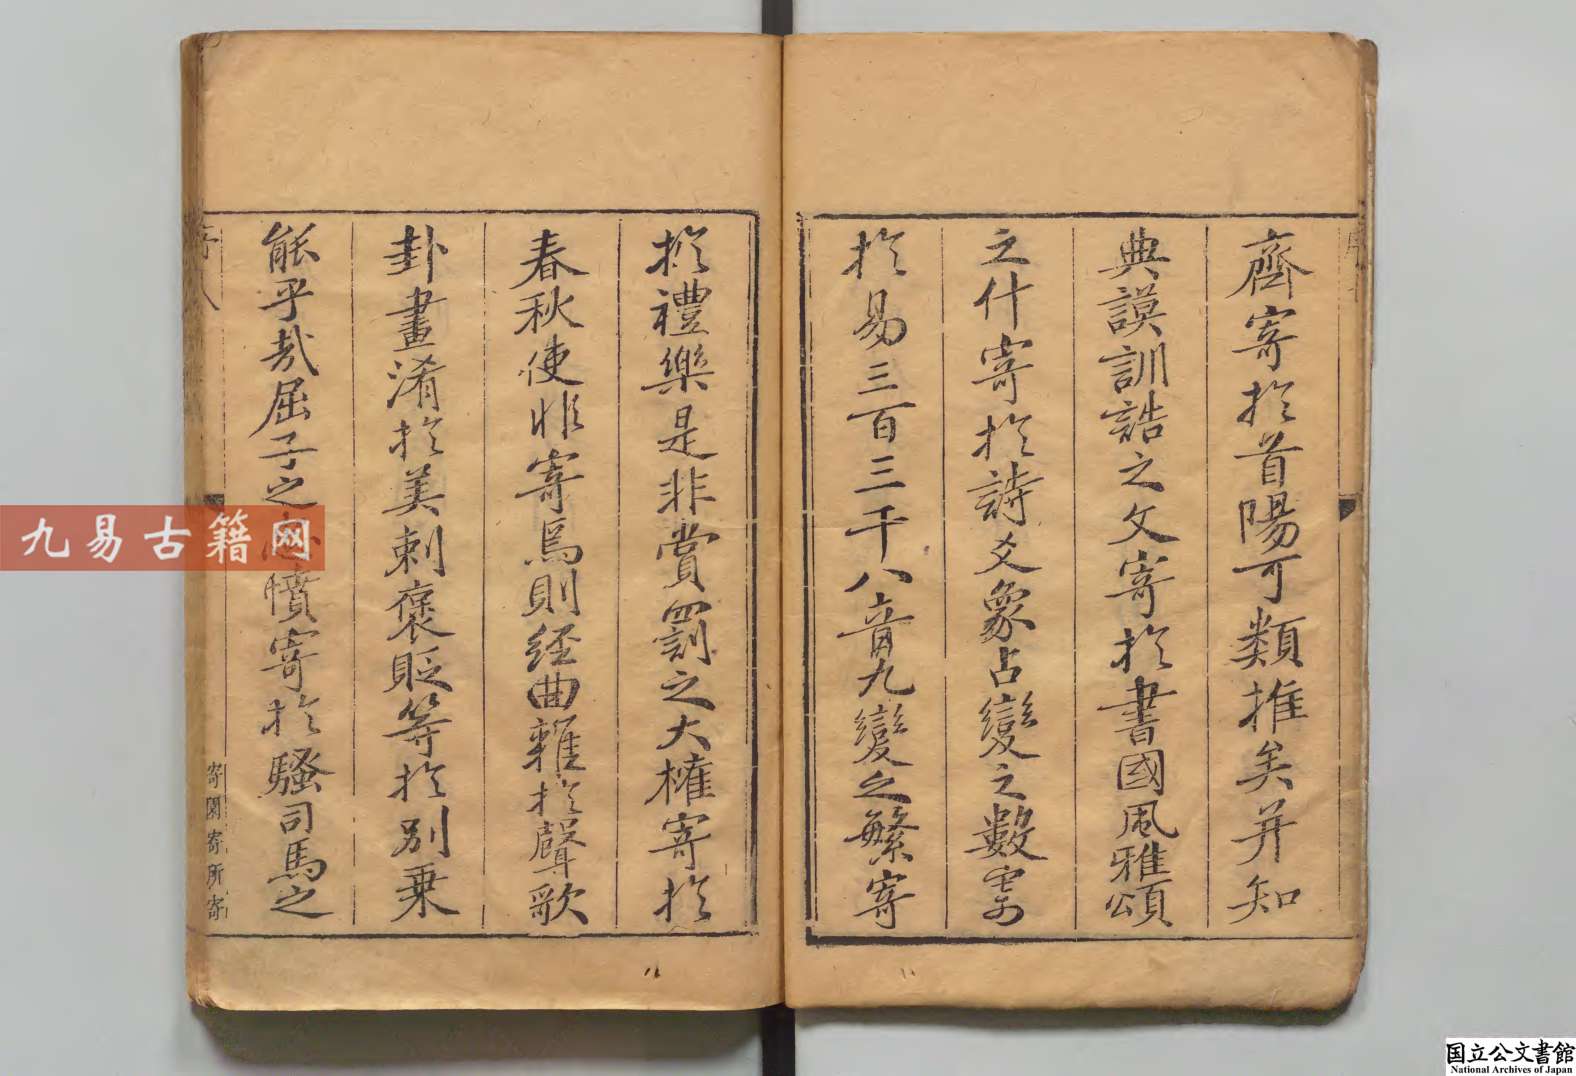 齊寄於首陽可類推矣并知
典謨訓誥之文寄於書國風雅頌
之什寄於詩爻象占變之數寄
於易三百三千八音九變之繁寄
於禮樂是非賞罰之大權寄於
春秋使非寄焉則經曲雜於聲歌
卦畫淆於美刺褒貶等於別乗
能乎哉屈子之 憤寄於騷司馬之
寄園寄所寄
九易古籍网
国立公文書館
National Archives of Japan